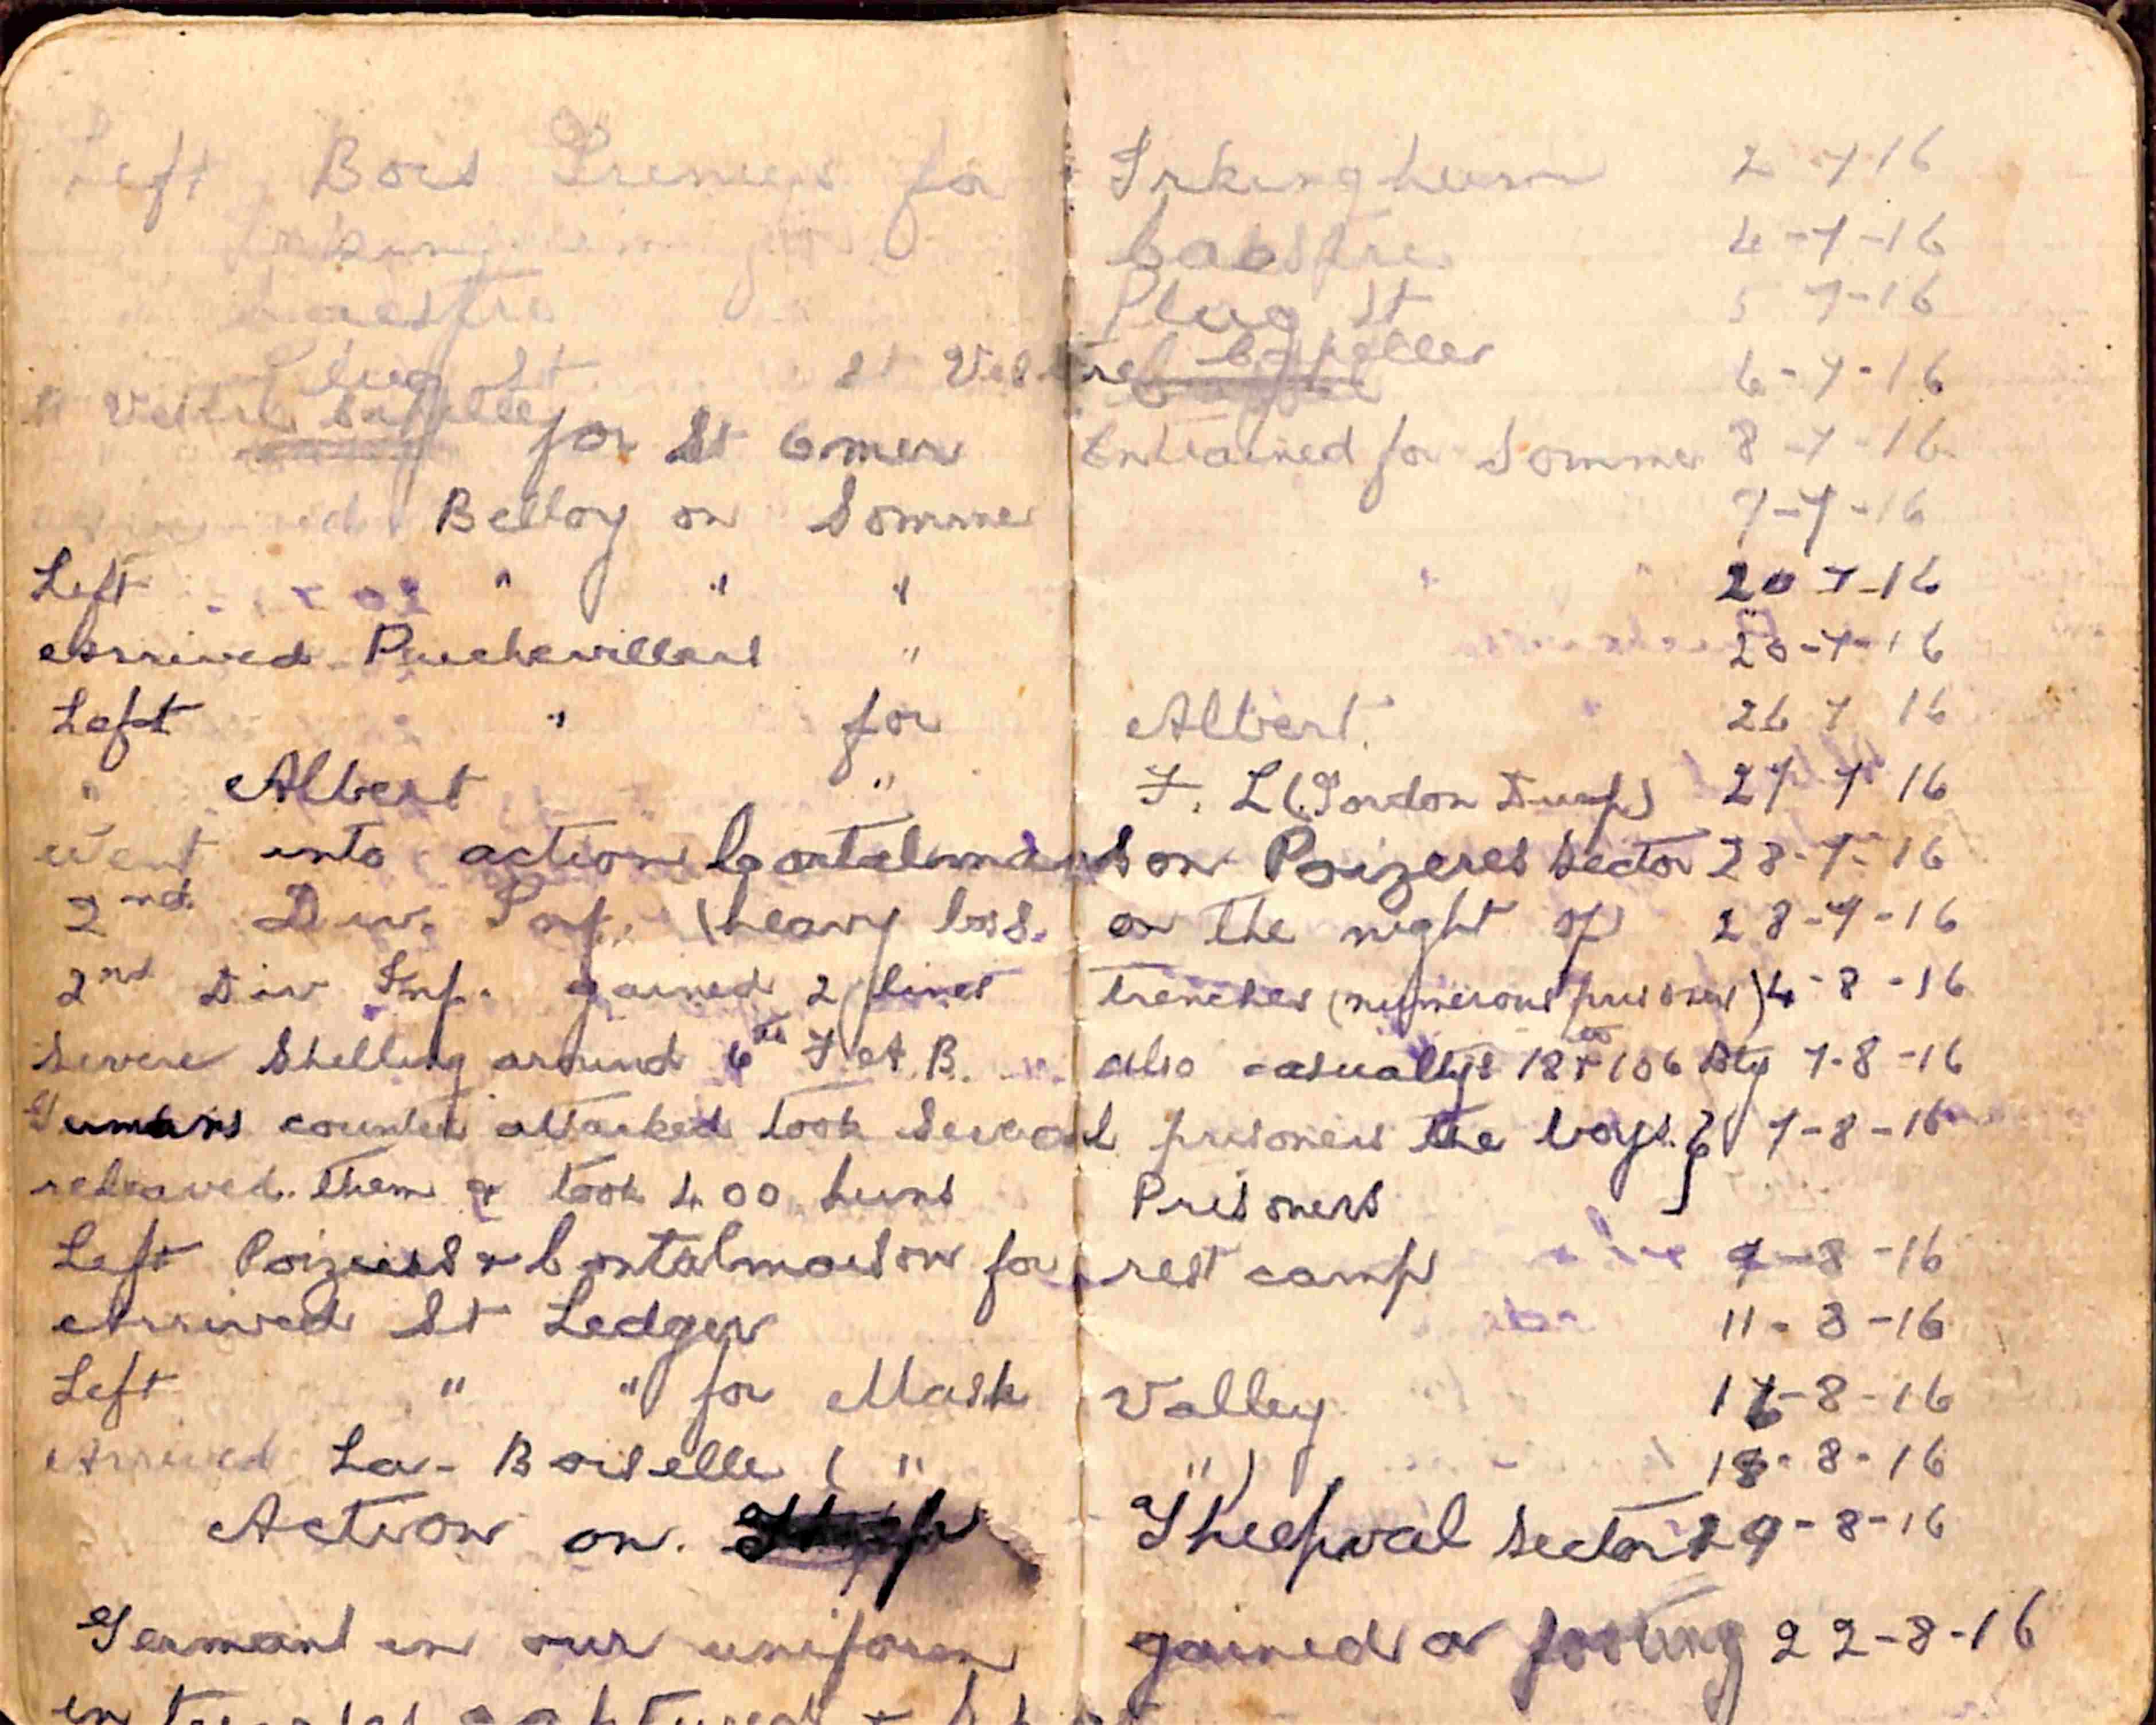 Left Bois Greniers for Erkinghem 2-7-16
for Caestre 4-7-16
Caestre Plug St 5-7-16
Plug St St Veltrel Capeller 6-7-16
" Veltrel Capelle for St Omer Entrained for Somme 8-7-16
Belloy on Somme 9-7-16
Left " " " 20-7-16
Arrived Puchevillard " 20-7-16
Left " for Albert 26 7 16
" Albert " F. L (Gordon Dump) 27 7 16
Went into action Contalmaison Poizeres Sector 28-7-16
2nd Div. Inf. (heavy loss. on the night of 28-7-16
2nd Div Inf. gained 2 lines trenches (numerous prisoners) 4-8-16
Severe Shelling around 6th F.A.B. also casualtys 18 & 106 Bty 7-8-16
Germans counter attacked took Several prisoners the boys. } 7-8-16
releaved. them & took 400 huns Prisoners
Left Poizeres & Contalmaison for rest camp 9-8-16
Arrived St Ledger 11-8-16
Left " " for Mash Valley 16-8-16
Arrived La-Boiselle ( " ") 18-8-16
Action on. Thiepval Sector 19-8-16
Germans in our uniform gained a footing 22-8-16
in captured +